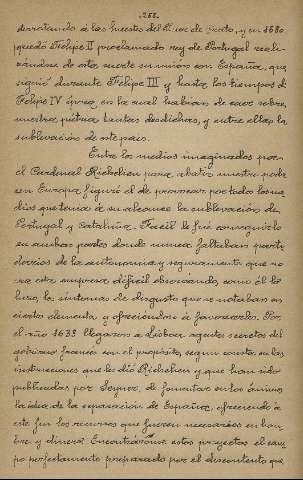 252.
derrotando á las huestes del Prior de Crato, y en 1580
quedó Felipe II proclamado rey de Portugal reali-
zándose de esta suerte su unión con España, que
siguió durante Felipe III y hasta los tiempos de
Felipe IV época en la cual habían de caer sobre
nuestra patria tantas desdichas, y entre ellas la
sublevación de este país.
Entre los medios imaginados por
el Cardenal Richelieu para abatir nuestro poder
en Europa figuró el de promover por todos los me-
dios que tenía á su alcance la sublevación de
Portugal y Cataluña. Fácil le fué conseguirlo
en ambas partes donde nunca faltaban parti-
darios de la autonomía y seguramente que no
era esta empresa difícil observando, como él lo
hizo, los síntomas de disgusto que se notaban en
cierto momento y ofreciéndose á favorecerlo. Por
el año 1633 llegaron á Lisboa agentes secretos del
gobierno francés con el propósito, según consta en las
instrucciones que les dió Richelieu y que han sido
publicadas por, de fomentar en los ánimos
la idea de la separación de España, ofreciendo á
este fin los recursos que fuesen necesarios en hom-
bres y dinero. Encontráronse estos proyectos el cam-
po perfectamente preparado por el descontento que